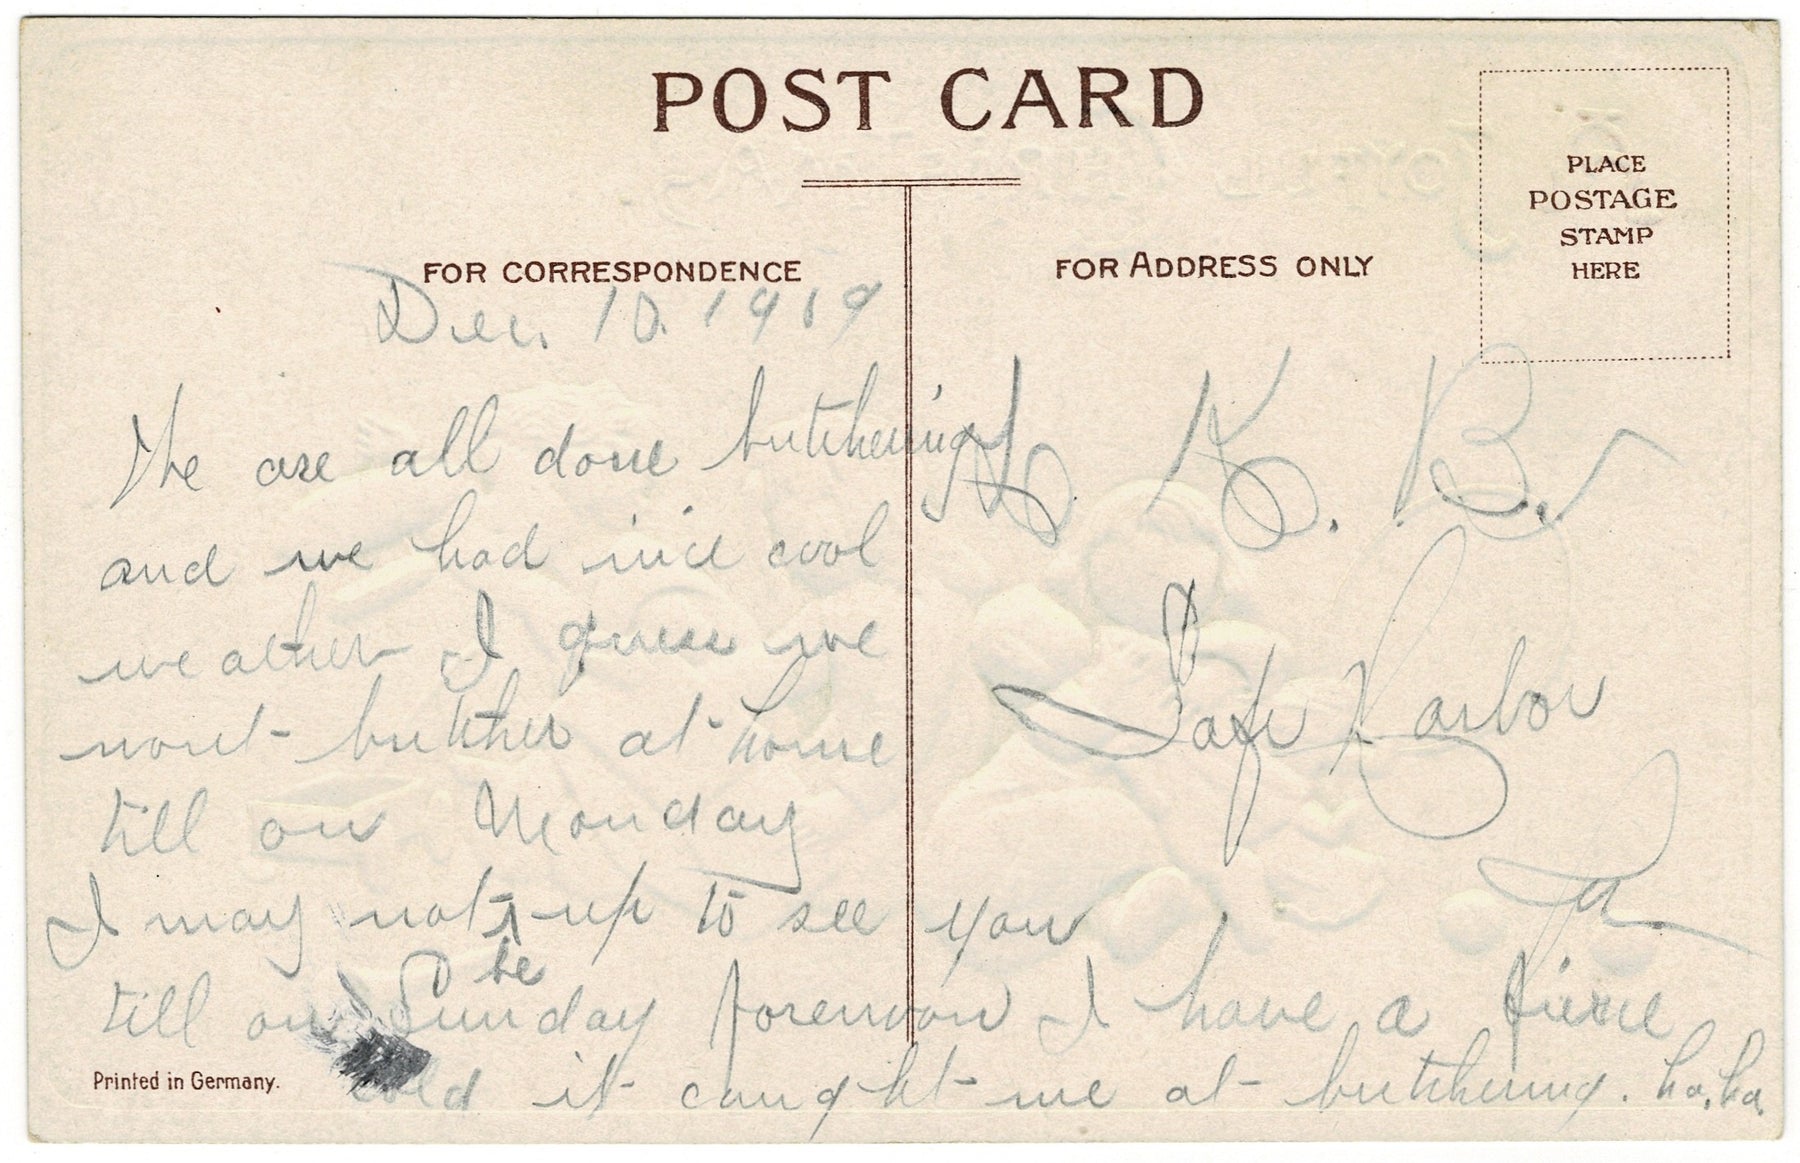 POST CARD
PLACE
POSTAGE
STAMP
HERE
FOR CORRESPONDENCE
FOR ADDRESS ONLY
Dec. 10. 1919
We are all done butchering
and we had nice cool
weather I guess we
wont butcher at home
till on Monday
I may not be up to see you
till on Sunday forenoon I have a fierce
cold it caught me at butchering. ha, ha.
K. B.
Safe Harbor
Pa.
Printed in Germany.